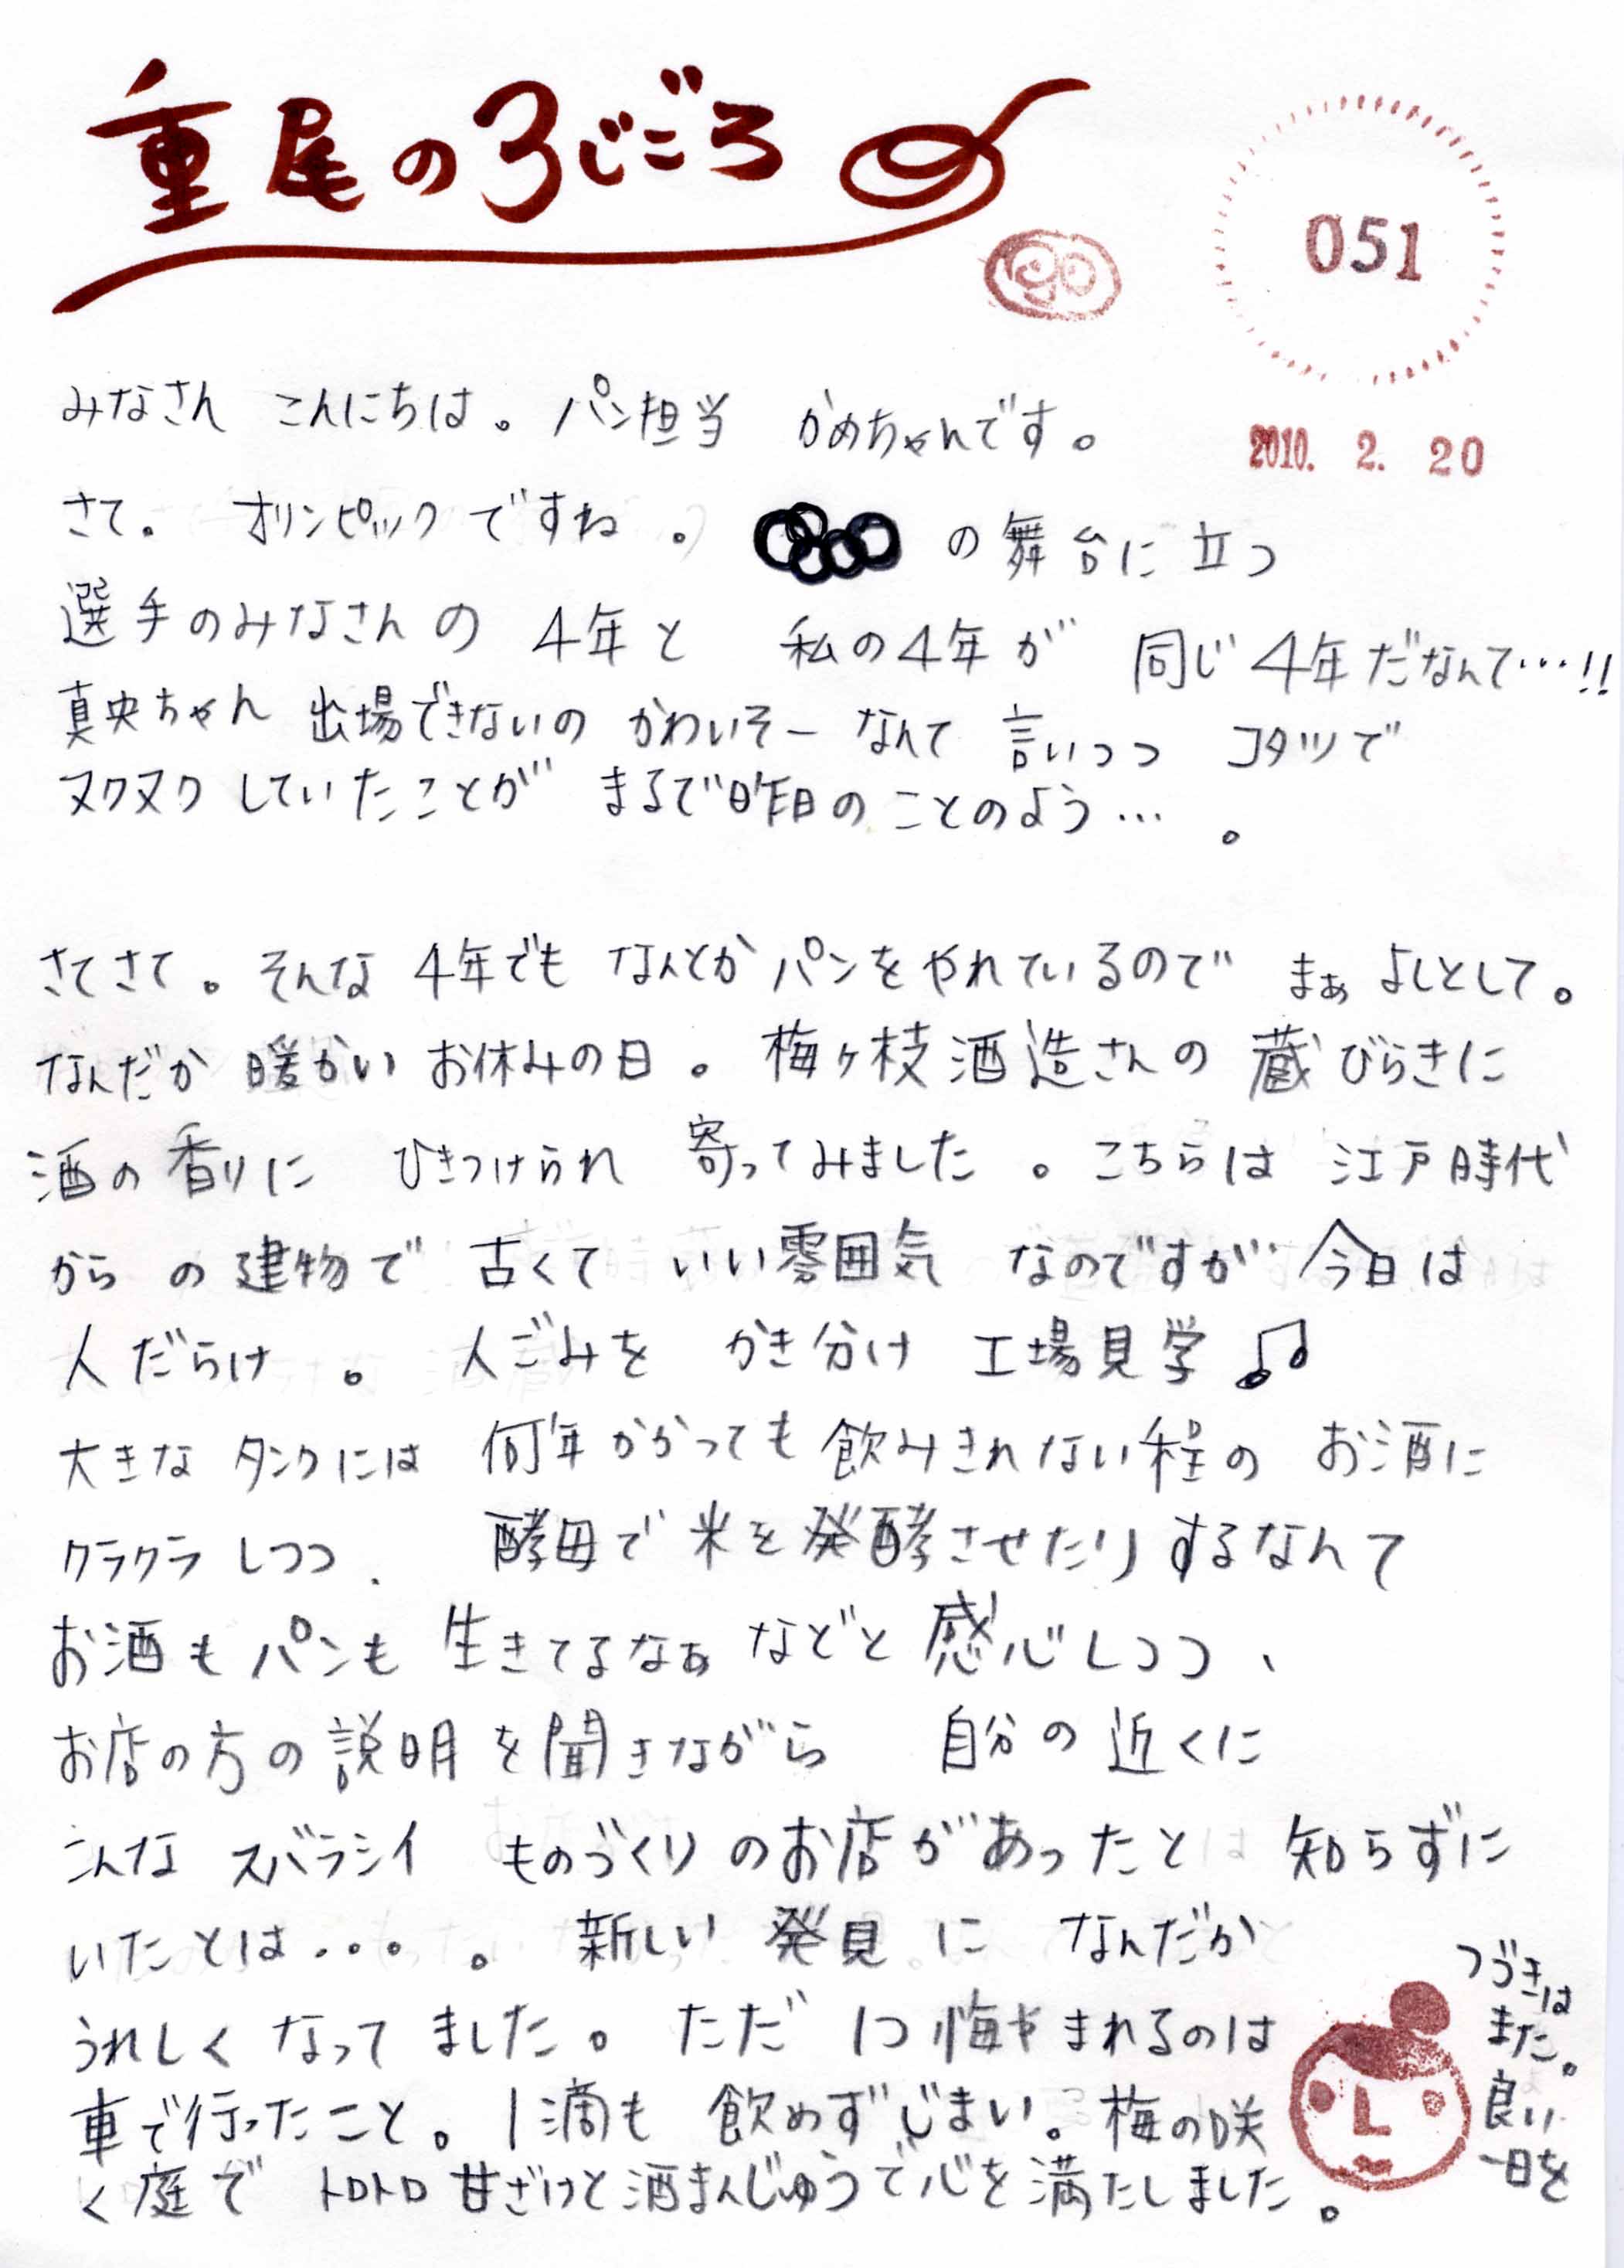 重尾の3じごろ
051
2010. 2. 20
みなさん こんにちは。パン担当 かめちゃんです。
さて。 オリンピックですね。 の舞台に立つ
選手のみなさんの 4年と 私の4年が 同じ4年だなんて…!!
真央ちゃん 出場できないの かわいそー なんて 言いつつ コタツで
ヌクヌクしていたことが まるで昨日のことのよう…。
さてさて。そんな4年でも なんとかパンをやれているので まぁ よしとして。
なんだか 暖かい お休みの日。梅ヶ枝酒造さんの 蔵びらきに
酒の香りに ひきつけられ 寄ってみました。こちらは 江戸時代
からの建物で 古くて いい雰囲気 なのですが 今日は
人だらけ。 人ごみを かき分け 工場見学♫
大きな タンクには 何年かかっても飲みきれない程の お酒に
クラクラしつつ、 酵母で米を発酵させたりするなんて
お酒もパンも 生きてるなぁ などと 感心しつつ、
お店の方の説明を聞きながら 自分の近くに
こんな スバラシイ ものづくりのお店があったと 知らずに
いたとは...。 新しい 発見 に なんだか
うれしく なって ました。ただ 1つ 悔やまれるのは
車で行ったこと。1滴も 飲めずじまい。梅の咲
く庭で トロトロ甘ざけと酒まんじゅうで心を満たしました。
つづきは
また。
良い
一日を